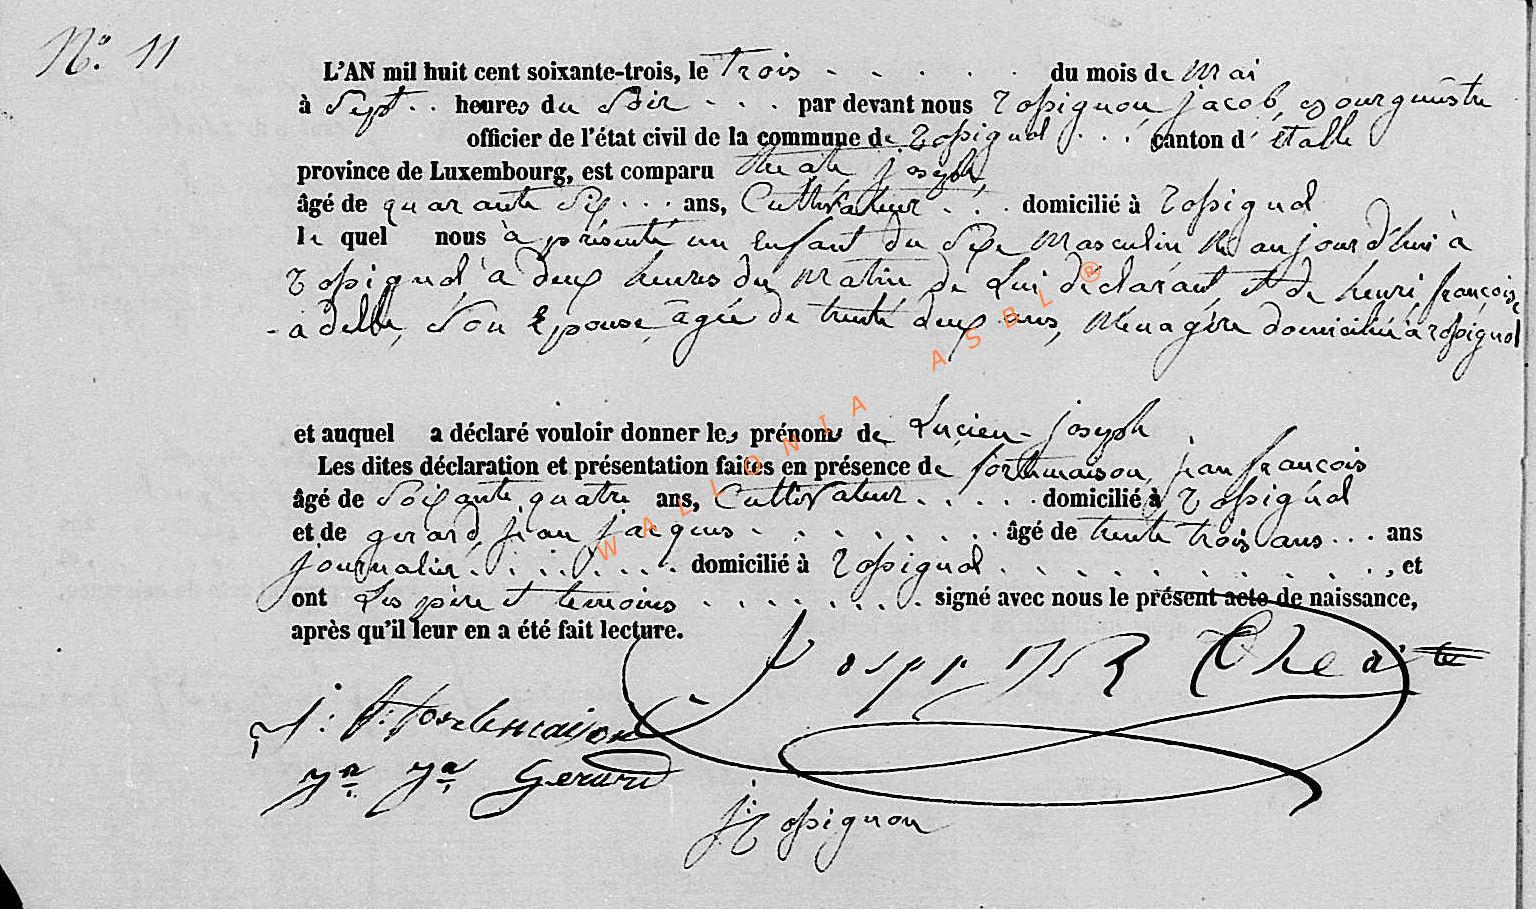 N.º 11
L'AN mil huit cent soixante-trois, le trois . . . . . . du mois de mai
à Sept . . heures du Soir . . . par devant nous rossignon, jacob, bourgmestre
officier de l'état civil de la commune de rossignol . . . canton d'étalle
province de Luxembourg, est comparu théate joseph,
âgé de quarante Six . . . ans, Cultivateur . . . domicilié à rossignol
le quel nous à présenté un enfant du Sexe masculin né aujourd'hui à
rossignol à deux heures du matin de Lui déclarant, et de henri, françoise
-adelle, Son Epouse, âgée de trente deux ans, Ménagère domiciliée à rossignol
et auquel a déclaré vouloir donner les prénoms de Lucien-joseph.
Les dites déclaration et présentation faites en présence de forthmaison, jean françois
âgé de Soixante quatre ans, Cultivateur . . . . . domicilié à rossignol
et de gerard, jean jacques . . . . . . . . âgé de trente trois ans . . . ans
journalier . . . . . . . domicilié à rossignol . . . . . . . . . . . . , et
ont Les père et temoins . . . . . . . . signé avec nous le présent acte de naissance,
après qu'il leur en a été fait lecture.
Théate
J: f: fortemaison
Jn Jq Gerard
j: rossignon
WALLONIA ASBL ®